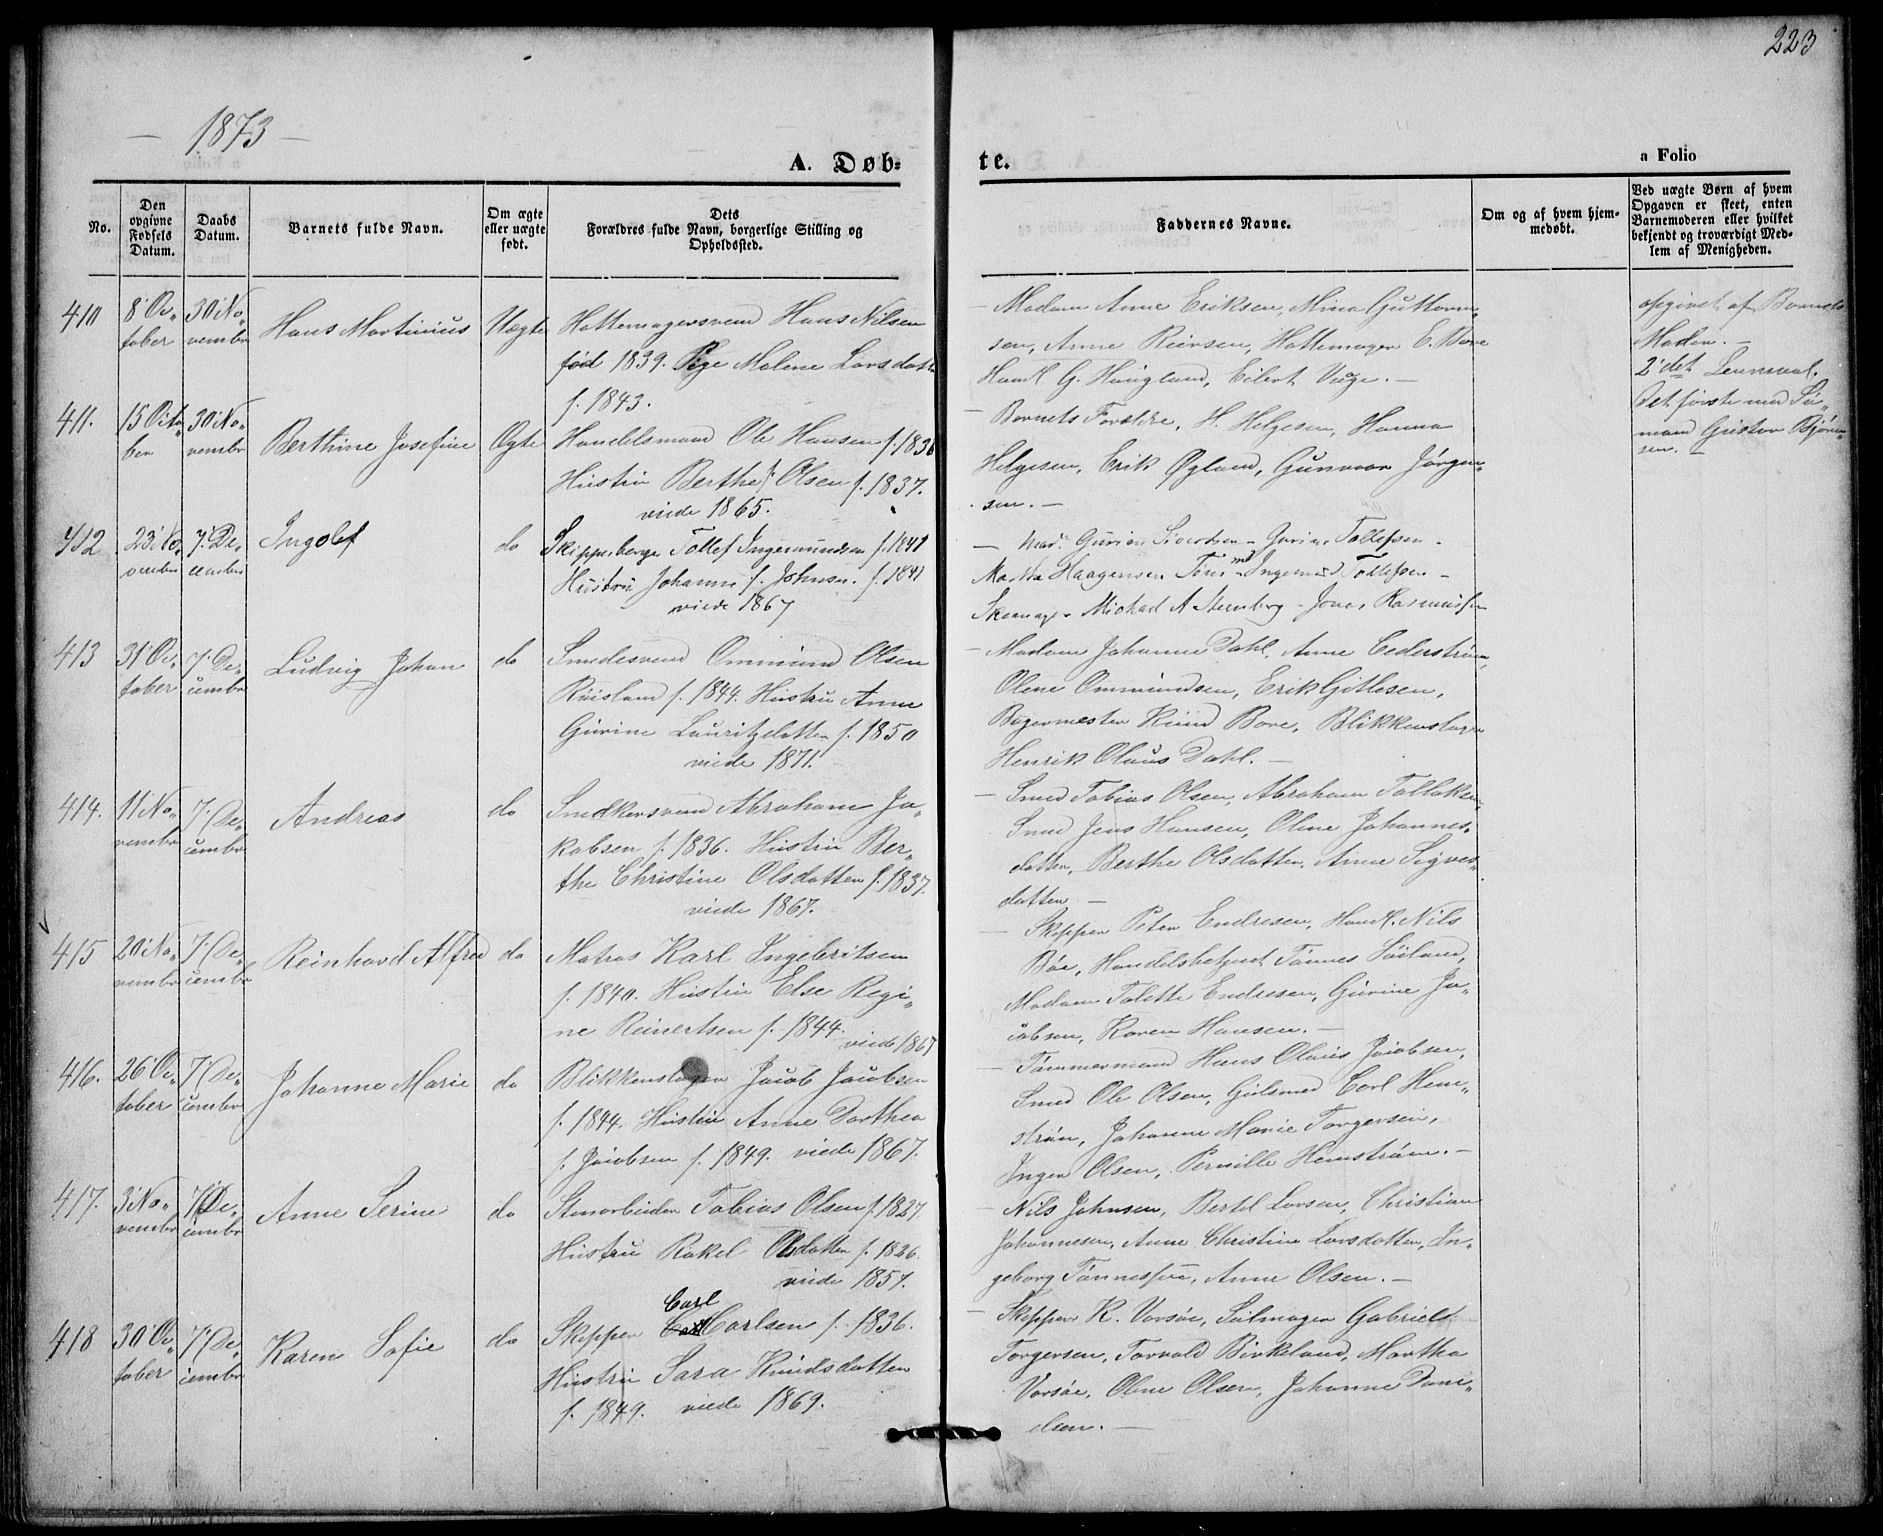 223
— 1873 —
A. Døb=
te.
a Folio
No.
Den
opgivne
Fødsels
Datum.
Daabs
Datum.
Barnets fulde Navn.
Om ægte
eller uægte
født.
Dets
Forældres fulde Navn, borgerlige Stilling og
Opholdssted.
Faddernes Navne.
Om og af hvem hjem-
medøbt.
Ved uægte Børn af hvem
Opgaven er skeet, enten
Barnemoderen eller hvilket
bekjendt og troværdigt Med-
lem af Menigheden.
410
8' Oc„
tober
30' No„
vembr
Hans Martinius
Uægte
Hattemagersvend Hans Nilsen
fød 1839. Pige Malene Larsdatte
f. 1843.
— Madam Anne Eriksen, Mina Guttorm„
sen, Anne Reiersen, Hattemager E. Bore
Handl G. Haugland, Eilert Vage. —
opgivet af Barnets
Moder. —
2' det Leiermaal.
Det første med Sø„
mand Grister Bjørn„
sen. —
411.
15 Octo„
ber
30' No„
vembr
Berthine Josefine
Ægte
Handelsmand Ole Hansen f. 1836
Hustru Berthe f. Olsen f. 1837.
viede 1865.
— Barnets Forældre, H. Helgesen, Hanna
Helgesen, Erik Øgland, Gunvor Jørgen„
sen. —
412
23' No„
vember
7' De„
cember
Ingolf
do
Skippsborger Tollef Ingemundsen f. 1841
Hustru Johanne f. Johnsn. f. 1841
viede 1867
— Mad. Gurine Sivertsen - Gurine Tollefsen -
Martha Haagensen Tømmd Ingemd Tollefsen -
Skomager Michael A Sternberg - Jonas Rasmussen
413
31' Oc„
tober
7' De„
cembr
Ludvig Johan
do
Smedesvend Ommund Olsen
Riisland f. 1844. Hustru Anne
Gurine Lauritzdatter f. 1850
viede 1871.
— Madam Johanne Dahl, Anne Cederstrøm,
Olene Ommundsen, Erik Gitlesen,
Bagermester Knud Bore, Blikkenslager
Henrik Olaus Dahl. —
414.
11' No„
vembr
7' De„
cembr
Andreas
do
Snedkersvend Abraham Ja„
kobsen f. 1836. Hustru Ber„
the Christine Olsdatter f. 1837.
viede 1867.
— Smed Tobias Olsen, Abraham Tollaksen
Smed Jens Hansen, Oline Johannes„
datter, Berthe Olsdatter, Anne Sigves„
datter. —
415
20' No„
vembr
7' De„
cembr
Reinhard Alfred
do
Matros Karl Ingebritsen
f. 1840. Hustru Else Regi„
ne Reinertsen f. 1844.
viede 1867
— Skipper Peter Endresen, Handl. Nils
Bøe, Handelsbetjent Tønnes Søiland,
Madam Talette Endresen, Gurine Ja„
cobsen, Karen Hansen. —
416.
26' Oc„
tober
7' De„
cembr
Johanne Marie
do
Blikkenslager Jacob Jacobsen
f. 1844. Hustru Anne Dorthea
f. Jacobsen f. 1849. viede 1867.
— Tømmermand Hans Olaus Jacobsen,
Smed Ole Olsen, Gulsmed Carl Hem„
strøm, Johanne Marie Torgersen,
Inger Olsen, Pernille Hemstrøm. —
417.
3' No„
vembr
7' De„
cembr
Anne Serine
do
Stenarbeider Tobias Olsen f. 1827
Hustru Rakel Olsdatter f. 1826.
viede 1857.
— Nils Johnsen, Bertel Larsen, Christian
Johannesen, Anne Christine Larsdatter, In„
geborg Tønnesen, Anne Olsen. —
418
30' Oc„
tober
7' De„
cembr
Karen Sofie
do
Carl
Skipper Carlsen f. 1836.
Hustru Sara Knudsdatter
f. 1849. viede 1869.
— Skipper K. Vorsøe, Seilmager Gabriel
Torgersen, Torvald Birkeland, Martha
Vorsøe, Oline Olsen, Johanne Dani„
elsen. —